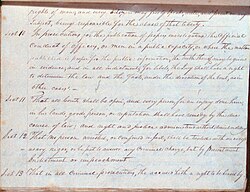 rights of man, and every
subject, being responsible for the abuse of that liberty.
Sect. 10 In prosecutions for the publication of papers investigating the official
conduct of officers, or men in a public capacity, or where the matter
published is proper for the public information, the truth thereof may be given
in evidence, and in all indictments for libels, the jury shall have a right
to determine the law and the facts, under the direction of the court, as in
other cases.
Sect. 11 That all courts shall be open, and every person for an injury done him
in his lands, goods, person, or reputation shall have remedy by the due
course of law; and right and justice administered without
Sect. 12 That no person
any criminal charge, but by presentment
indictment or impeachment.
Sect. 13 That in all criminal prosecutions, the accused hath a right to be heard by